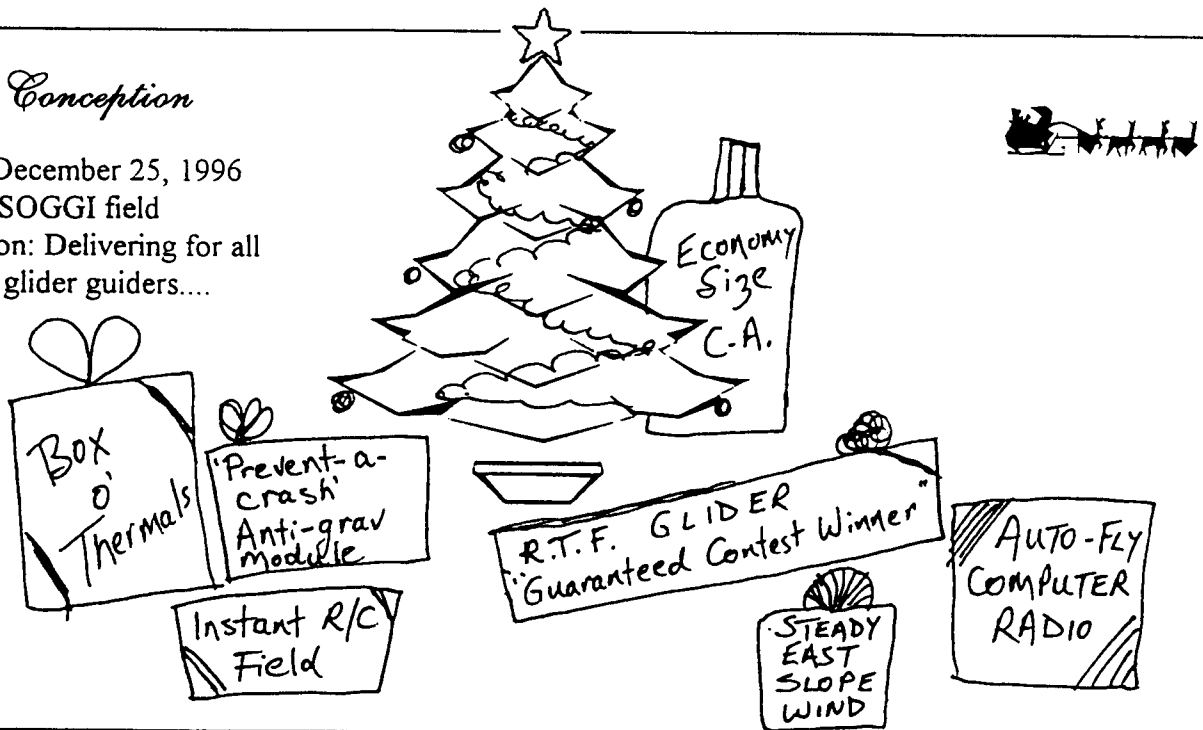 Conception
December 25, 1996
SOGGI field
on: Delivering for all
glider guiders....
Economy
Size
C-A.
Box
O'
Thermals
'Prevent-a-
crash'
Anti-grav
module
Instant R/C
Field
R.T.F. GLIDER
"Guaranteed Contest Winner"
STEADY
EAST
SLOPE
WIND
AUTO-FLY
COMPUTER
RADIO